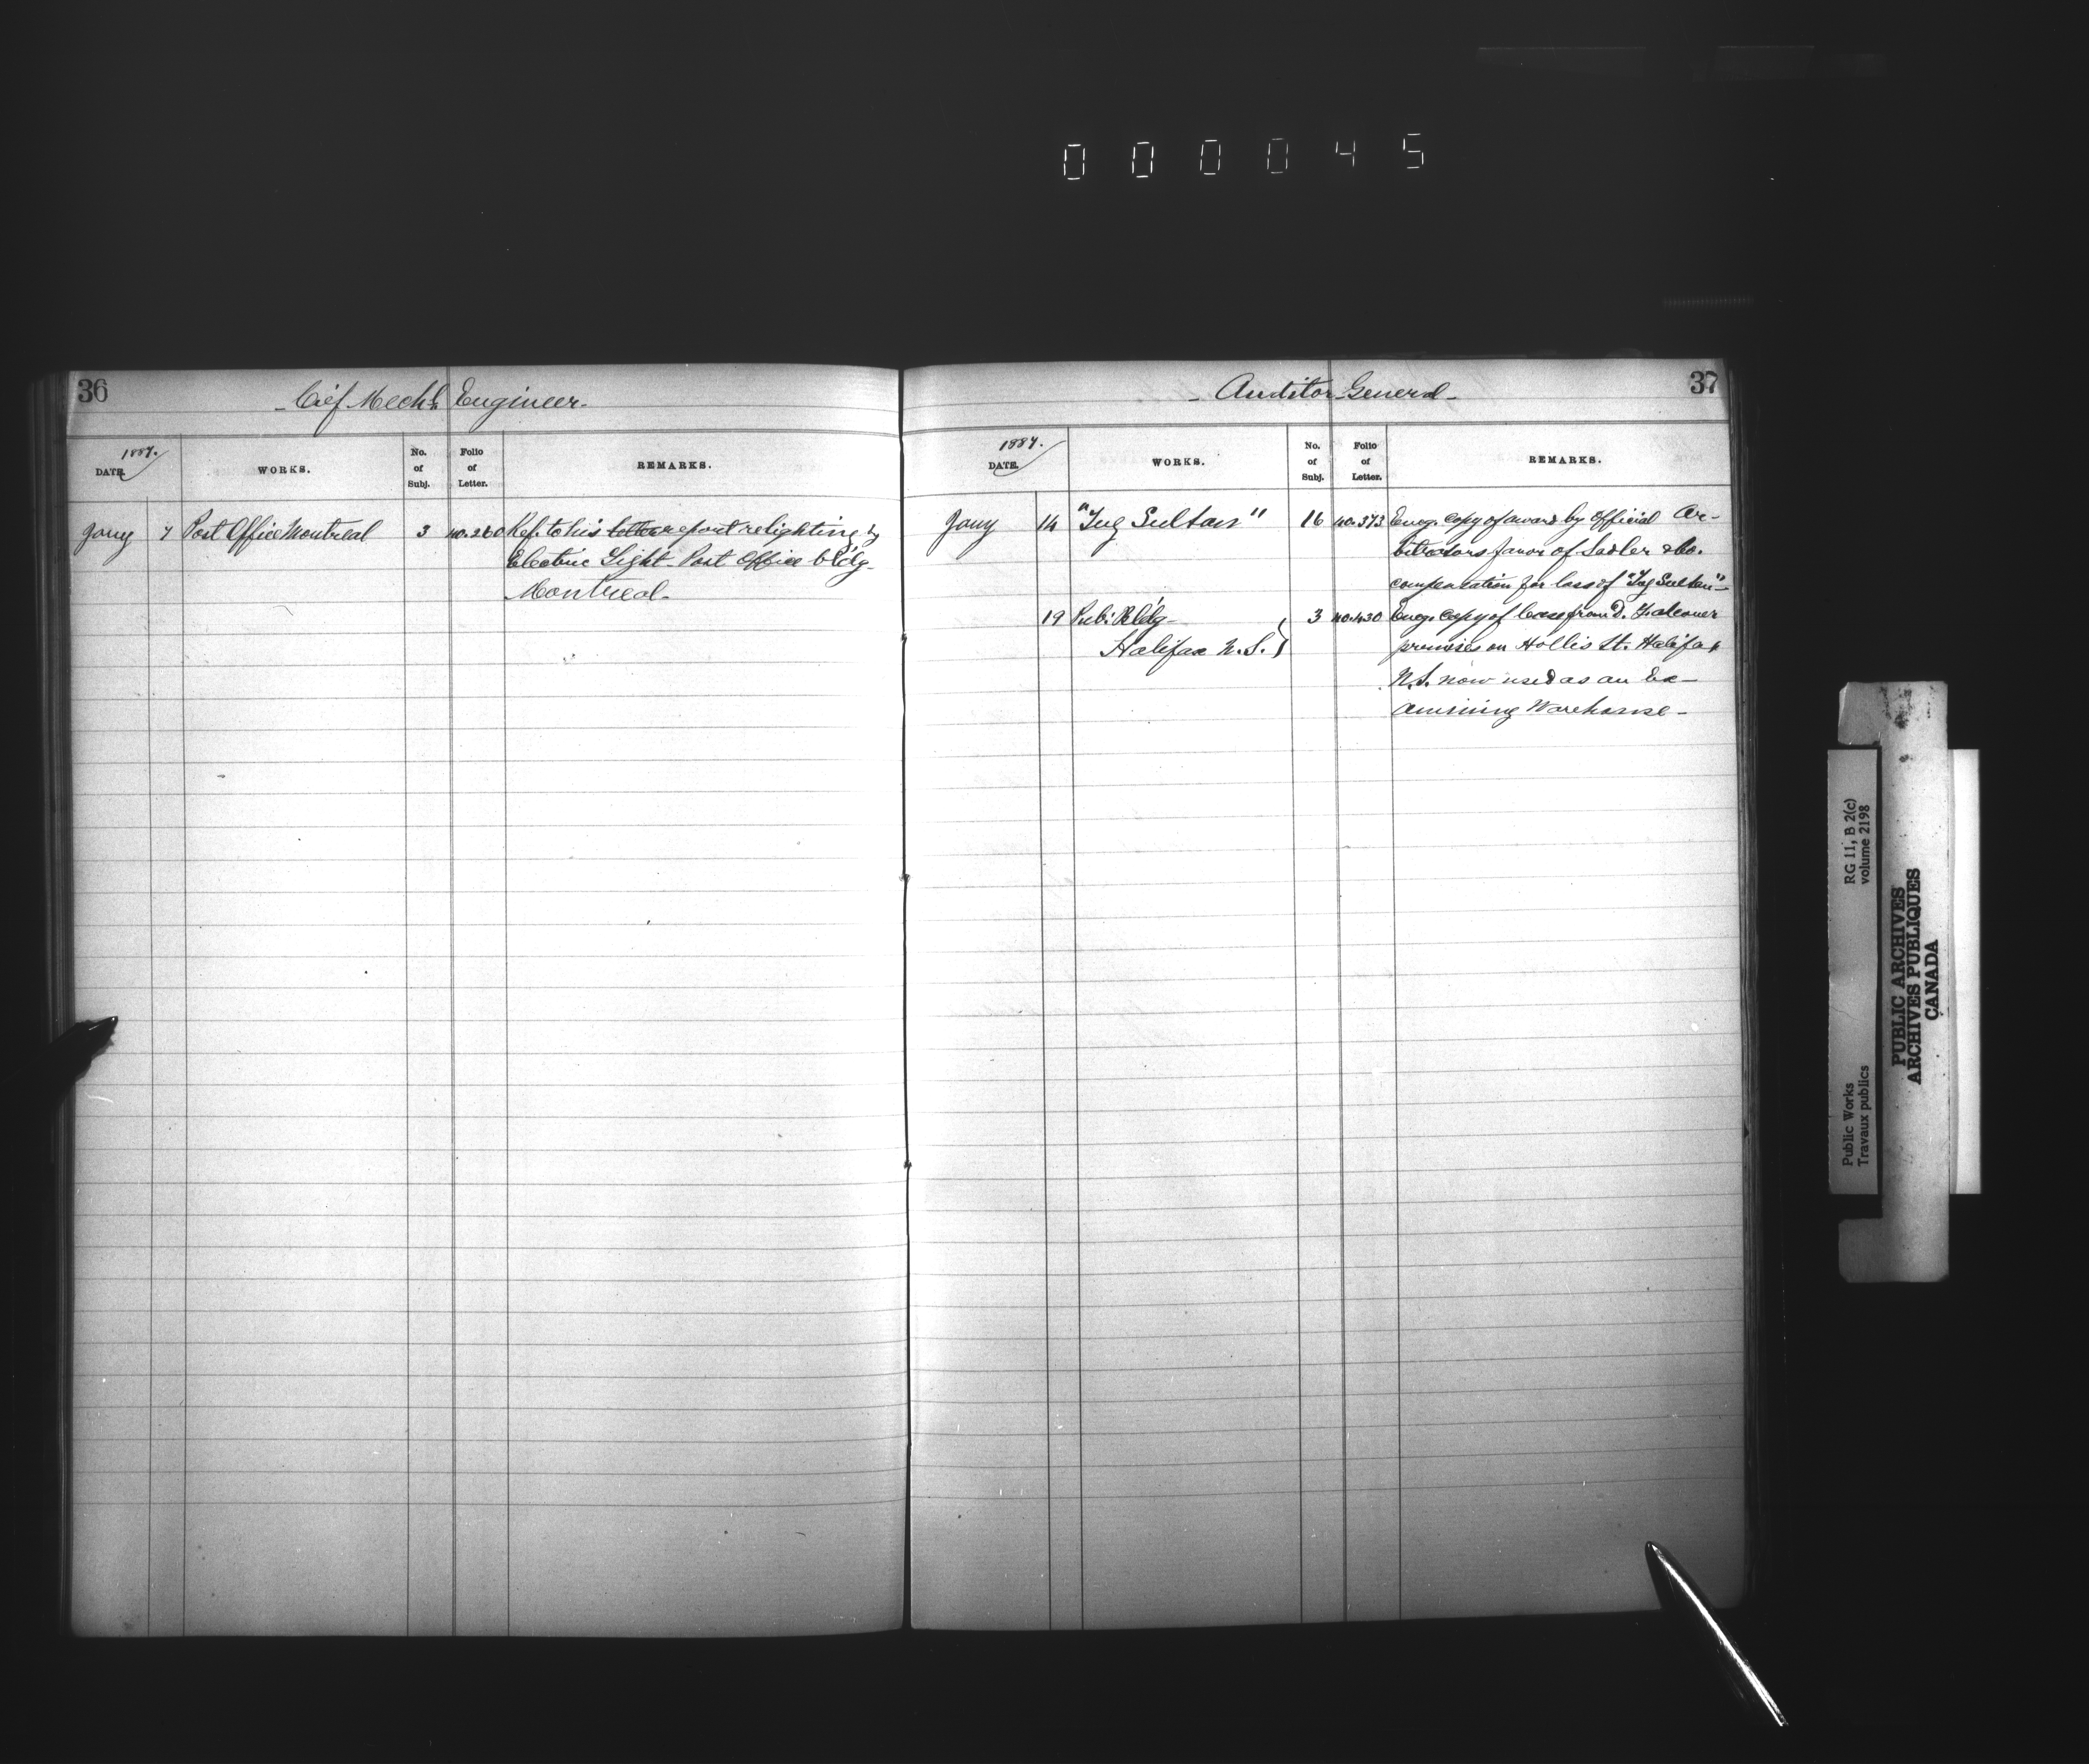 000045
36
- Cief Mechl Engineer -
1887.
DATE.
WORKS.
No. of Subj.
Folio of Letter.
REMARKS.
Jany 7 Post Office Montreal 3 40.260 Ref. to his letter report re lighting by
Electric Light - Post Office bldg -
Montreal -
- Auditor General -
37
1887.
DATE.
WORKS.
No. of Subj.
Folio of Letter.
REMARKS.
Jany 14 "Tug Sultan" 16 40.373 Encg. copy of award by Official Ar-
bitrators favor of Sadler & Co.
compensation for loss of "Tug Sultan" -
19 Pub: Bldg - 3 40.430 Encg. copy of lease from D. Falconer
Halifax N.S. } premises on Hollis St. Halifax
N.S. now used as an Ex-
amining Warehouse -
Public Works
Travaux publics
RG 11, B 2(c)
volume 2198
PUBLIC ARCHIVES
ARCHIVES PUBLIQUES
CANADA